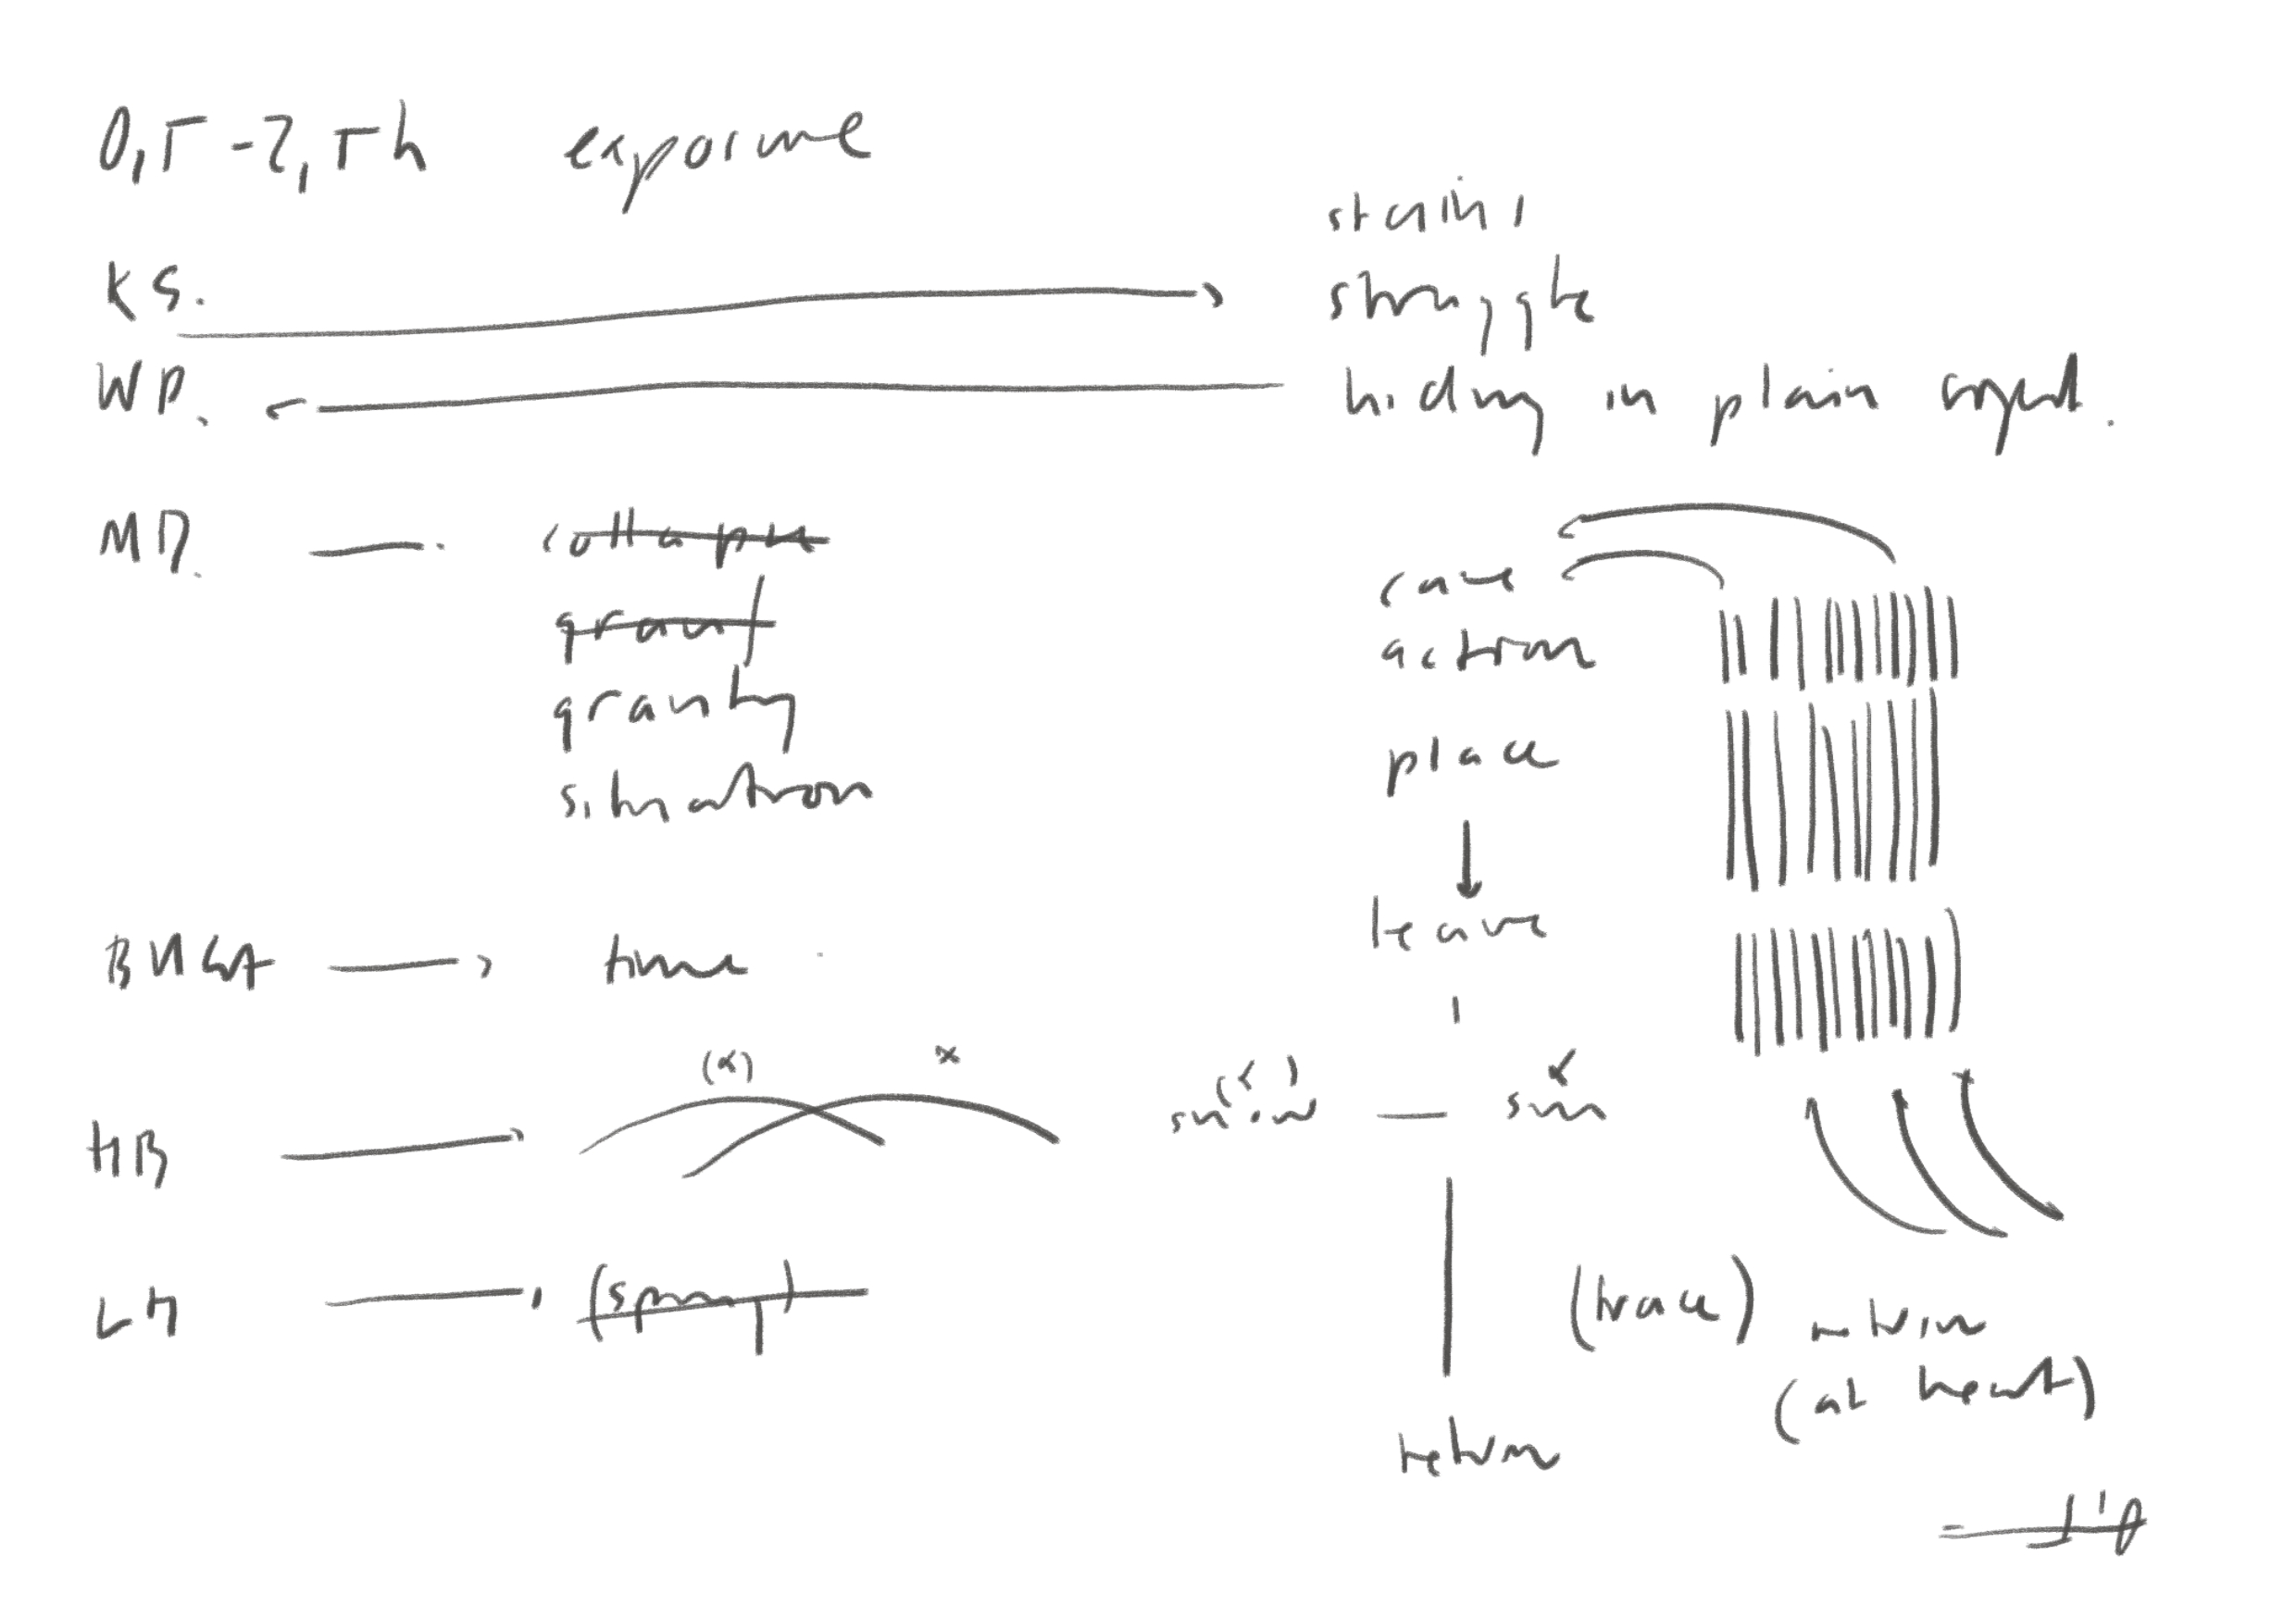 0,5-2,5h exposure
stains
KS. struggle
WP. hiding in plain
MP. collapse
gravity
situation
care
action
place
leave
time
HB (x) x
snow — sun
LH (spring)
(trace) return
(at heart)
return